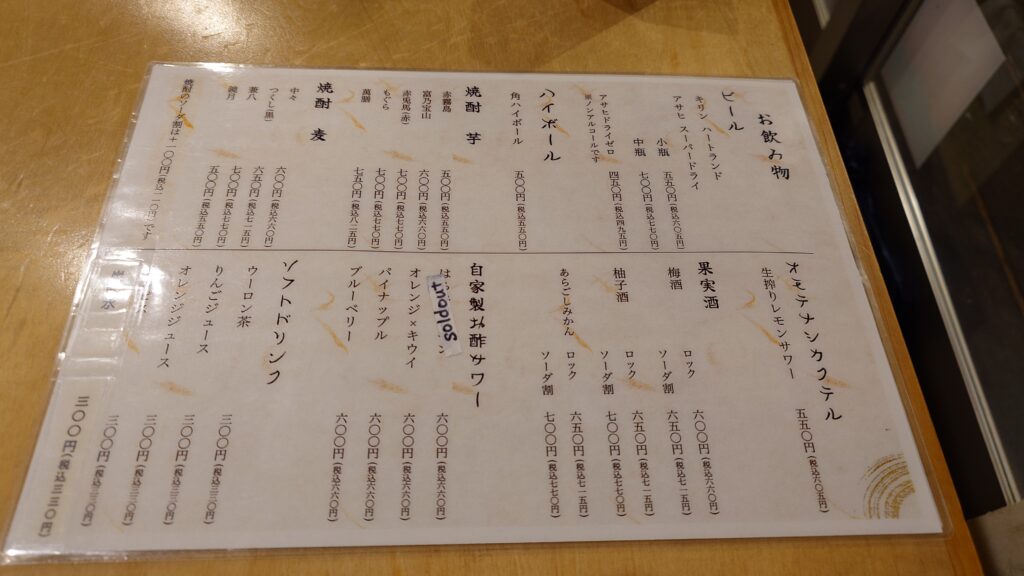 お飲み物
ビール
キリン ハートランド
アサヒ スーパードライ
小瓶 五五〇円(税込六〇五円)
中瓶 七〇〇円(税込七七〇円)
アサヒドライゼロ 四五〇円(税込四九五円)
※ノンアルコールです
ハイボール
角ハイボール 五〇〇円(税込五五〇円)
焼酎 芋
赤霧島 五〇〇円(税込五五〇円)
富乃宝山 六〇〇円(税込六六〇円)
赤兎馬(赤) 七〇〇円(税込七七〇円)
もぐら 七〇〇円(税込七七〇円)
萬膳 七五〇円(税込八二五円)
焼酎 麦
中々 六〇〇円(税込六六〇円)
つくし(黒) 六五〇円(税込七一五円)
兼八 七〇〇円(税込七七〇円)
鏡月 五〇〇円(税込五五〇円)
焼酎のソーダ割は+一〇〇円(税込一一〇円)です
オモテナシカクテル
生搾りレモンサワー 五五〇円(税込六〇五円)
果実酒
梅酒 ロック 六〇〇円(税込六六〇円)
ソーダ割 六五〇円(税込七一五円)
柚子酒 ロック 六五〇円(税込七一五円)
ソーダ割 七〇〇円(税込七七〇円)
あらごしみかん ロック 六五〇円(税込七一五円)
ソーダ割 七〇〇円(税込七七〇円)
自家製お酢サワー
は 六〇〇円(税込六六〇円)
soldout
オレンジ×キウイ 六〇〇円(税込六六〇円)
パイナップル 六〇〇円(税込六六〇円)
ブルーベリー 六〇〇円(税込六六〇円)
ソフトドリンク
ウーロン茶 三〇〇円(税込三三〇円)
りんごジュース 三〇〇円(税込三三〇円)
オレンジジュース 三〇〇円(税込三三〇円)
三〇〇円(税込三三〇円)
三〇〇円(税込三三〇円)